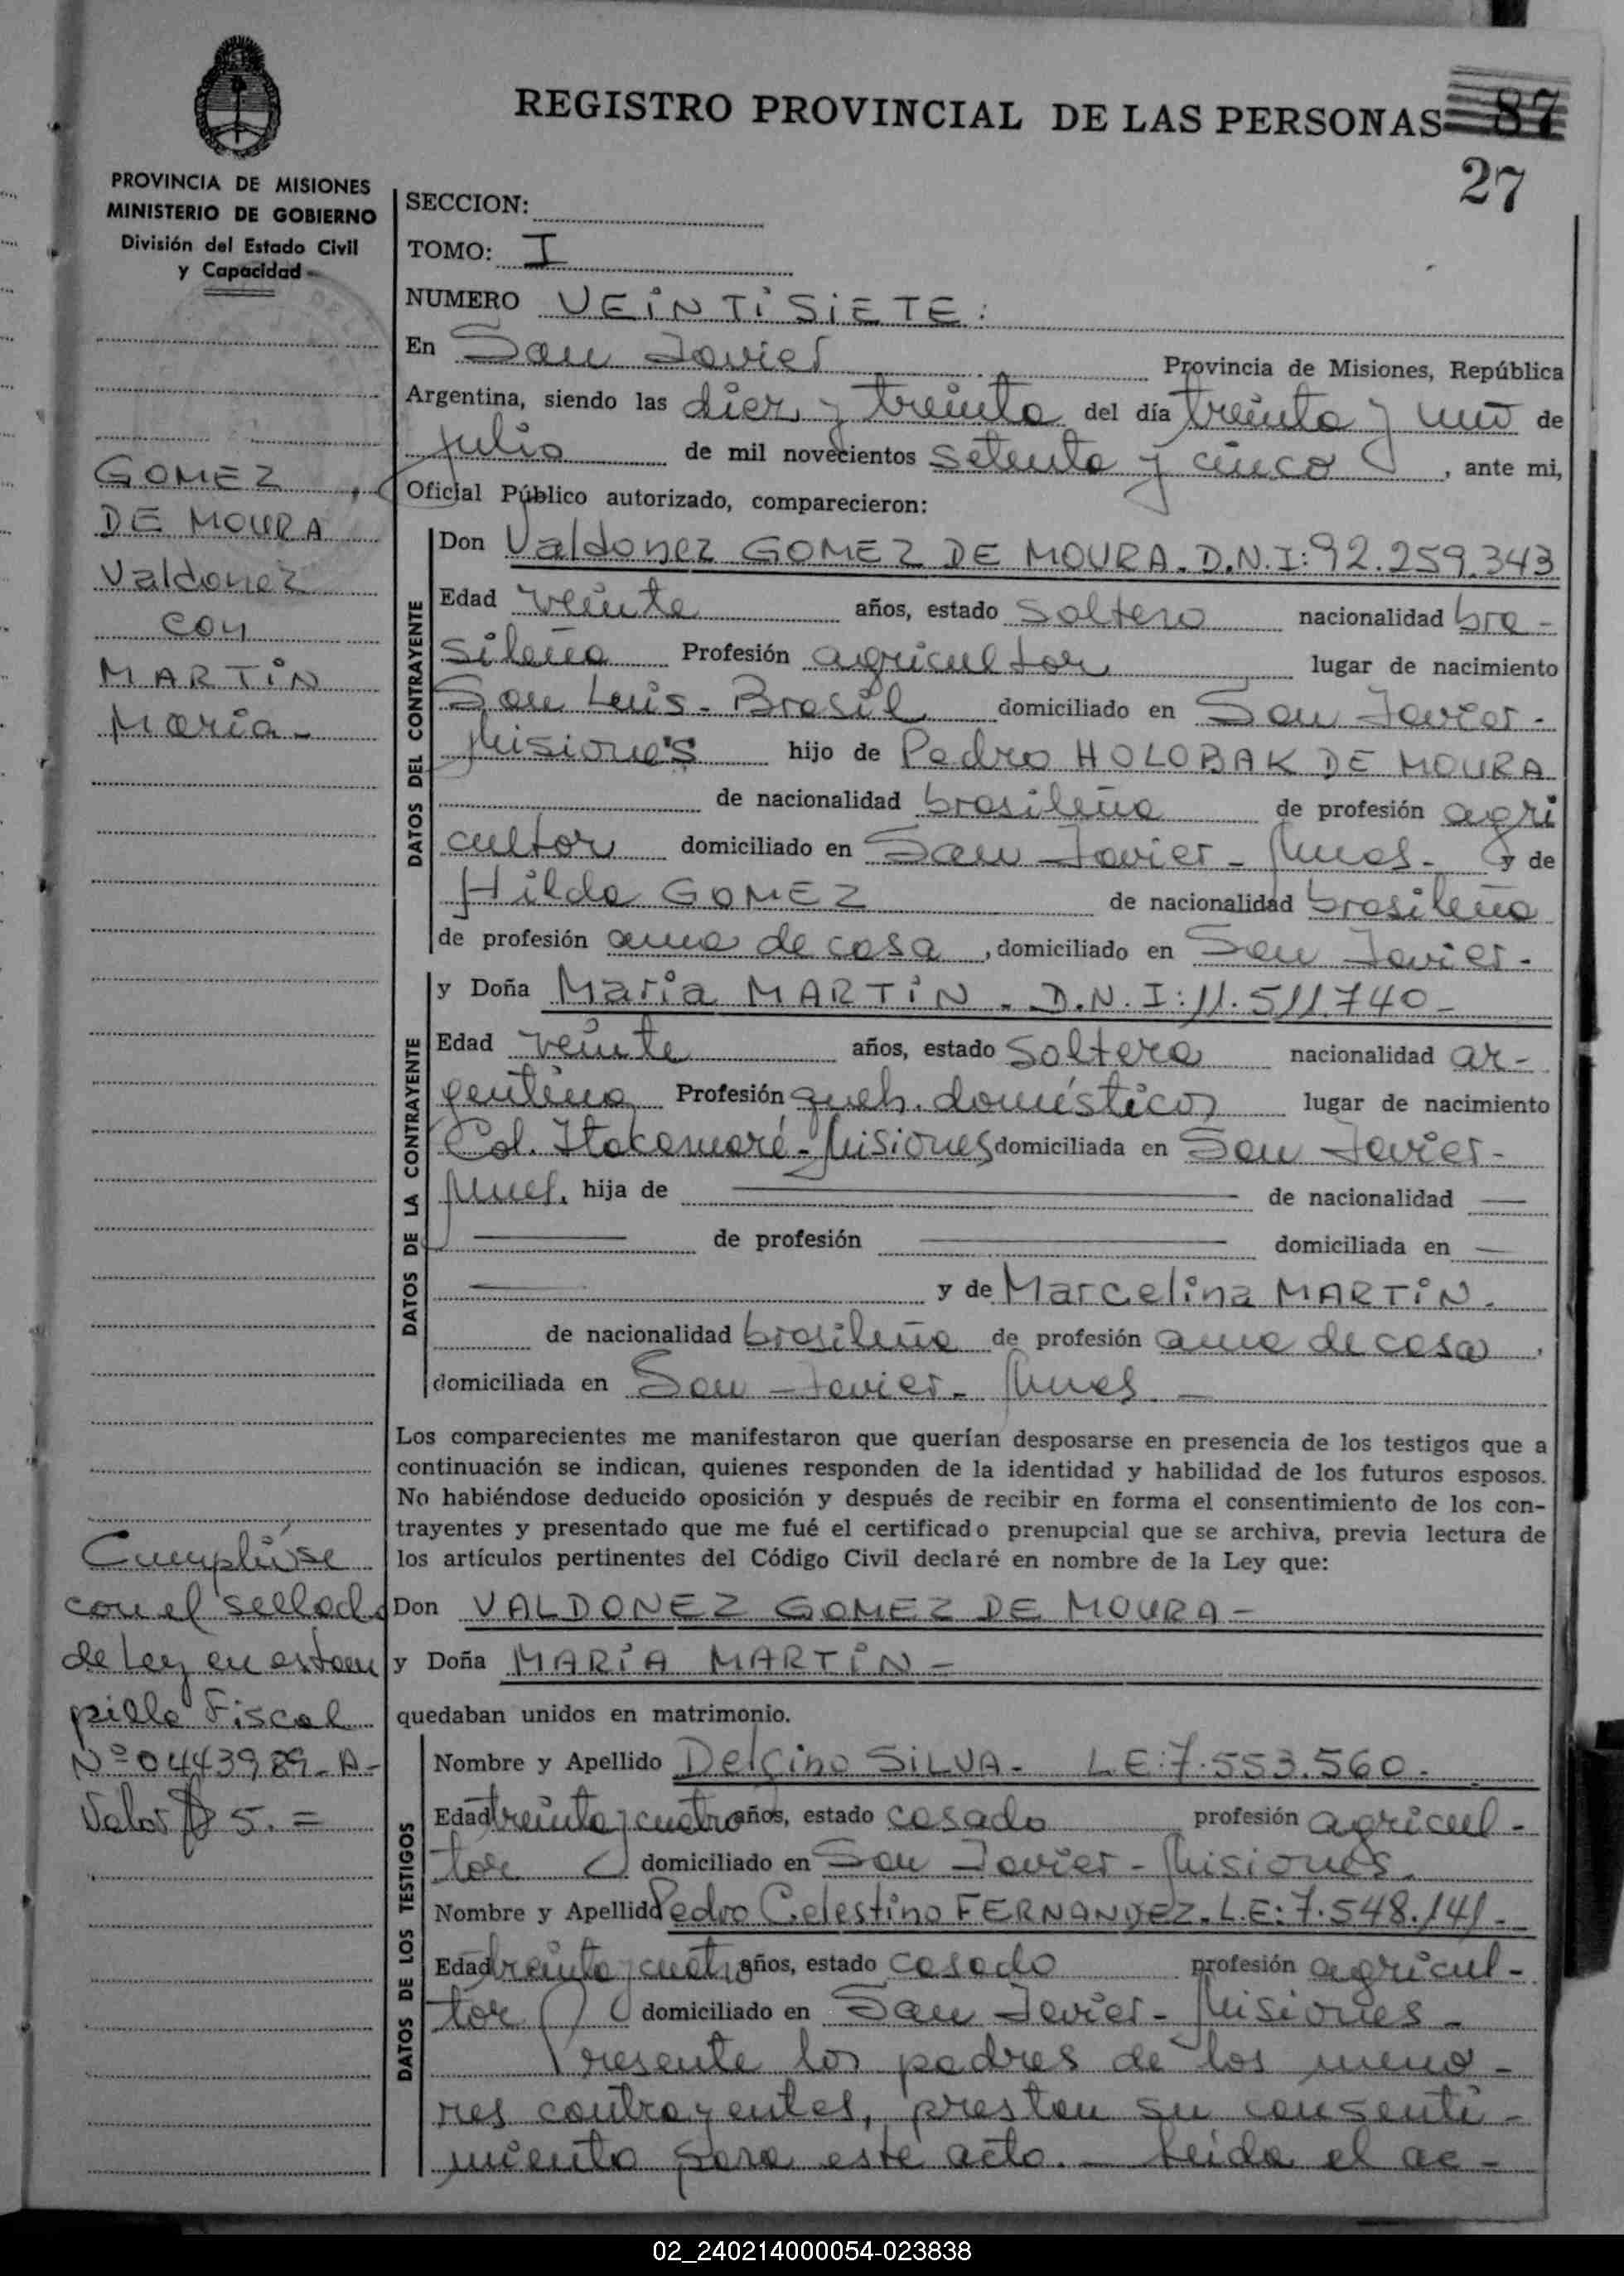 REGISTRO PROVINCIAL DE LAS PERSONAS 87
27
PROVINCIA DE MISIONES
MINISTERIO DE GOBIERNO
División del Estado Civil
y Capacidad
SECCION:
TOMO: I
NUMERO VEINTISIETE:
En San Javier Provincia de Misiones, República
Argentina, siendo las diez y treinta del día treinta y uno de
julio de mil novecientos setenta y cinco, ante mi,
Oficial Público autorizado, comparecieron:
GOMEZ
DE MOURA
Valdonez
con
MARTIN
Maria-
DATOS DEL CONTRAYENTE
Don Valdonez GOMEZ DE MOURA. D.N.I: 92.259.343
Edad veinte años, estado soltero nacionalidad bra-
sileña Profesión agricultor lugar de nacimiento
San Luis - Brasil domiciliado en San Javier-
Misiones hijo de Pedro HOLOBAK DE MOURA
de nacionalidad brasileña de profesión agri
cultor domiciliado en San Javier - Mnes. y de
Hilda GOMEZ de nacionalidad brasileña
de profesión ama de casa, domiciliado en San Javier-
DATOS DE LA CONTRAYENTE
y Doña Maria MARTIN - D.N.I: 11.511.740-
Edad veinte años, estado soltera nacionalidad ar-
gentina Profesión queh. domésticos lugar de nacimiento
Col. Itacamaré - Misiones domiciliada en San Javier-
Mnes. hija de — de nacionalidad —
— de profesión — domiciliada en —
— y de Marcelina MARTIN.
de nacionalidad brasileña de profesión ama de casa,
domiciliada en San Javier - Mnes -
Los comparecientes me manifestaron que querían desposarse en presencia de los testigos que a
continuación se indican, quienes responden de la identidad y habilidad de los futuros esposos.
No habiéndose deducido oposición y después de recibir en forma el consentimiento de los con-
trayentes y presentado que me fué el certificado prenupcial que se archiva, previa lectura de
los artículos pertinentes del Código Civil declaré en nombre de la Ley que:
Don VALDONEZ GOMEZ DE MOURA-
y Doña MARIA MARTIN-
quedaban unidos en matrimonio.
Cumplióse
con el sellado
de Ley en estam
pilla Fiscal
Nº 0443989-A-
Valor $ 5.=
DATOS DE LOS TESTIGOS
Nombre y Apellido Delcino SILVA- LE: 7.553.560-
Edad treinta y cuatro años, estado casado profesión agricul-
tor domiciliado en San Javier - Misiones.
Nombre y Apellido Pedro Celestino FERNANDEZ. L.E: 7.548.141-
Edad treinta y cuatro años, estado casado profesión agricul-
tor domiciliado en San Javier - Misiones -
Presente los padres de los meno-
res contrayentes, prestan su consenti-
miento para este acto. - Leída el ac-
02_240214000054-023838